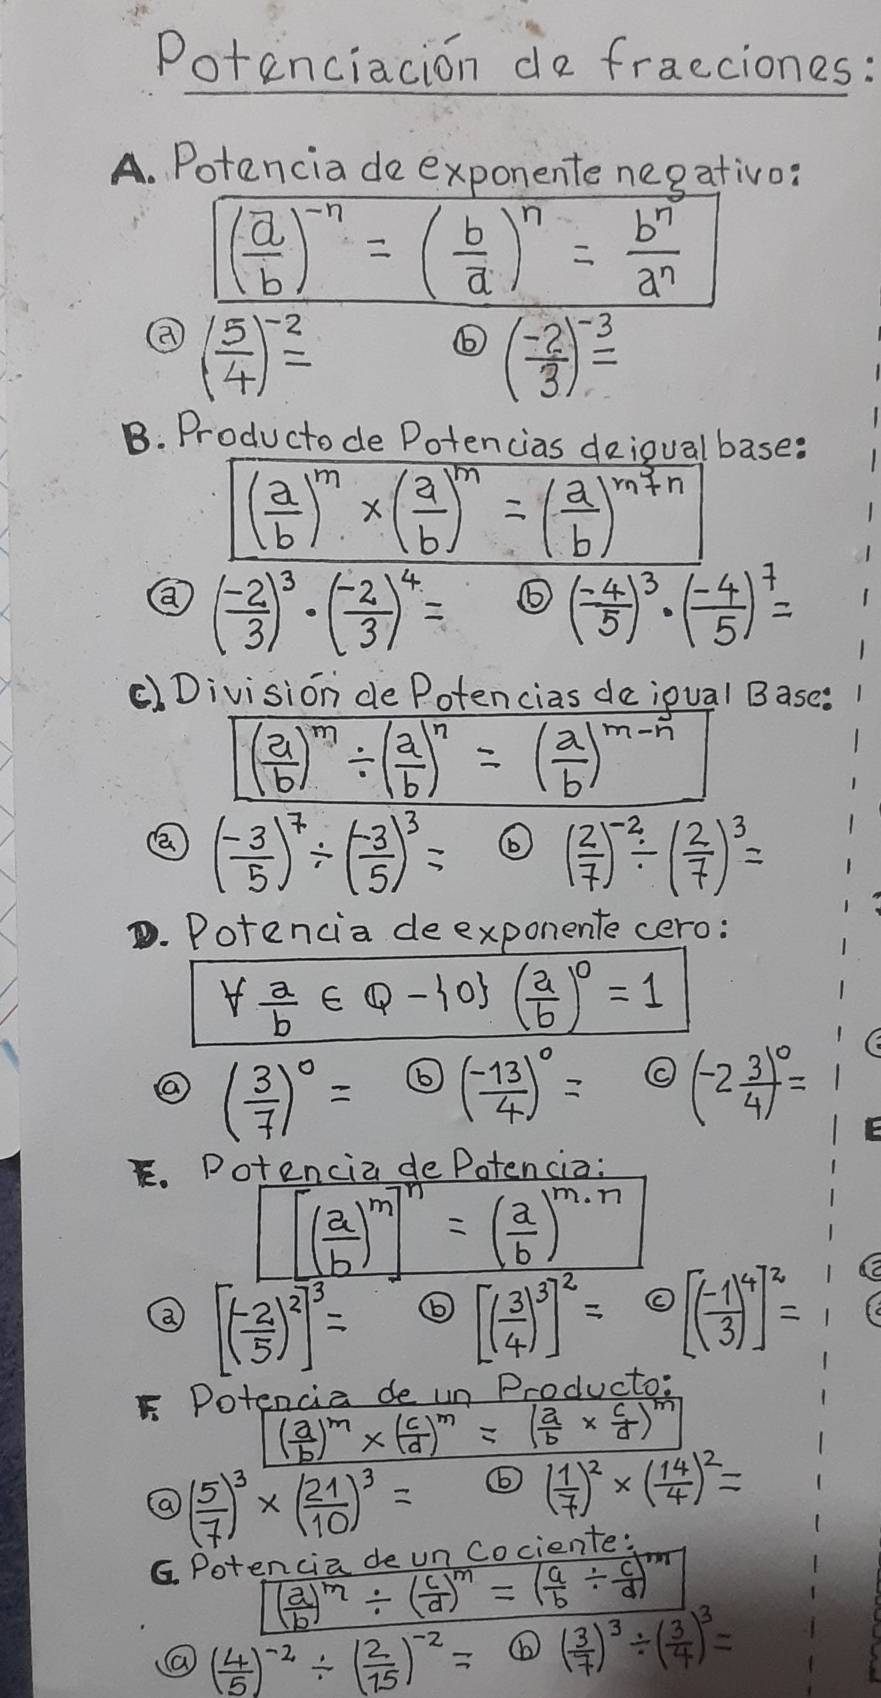 Potenciación de fracciones:
A. Potencia de exponente negativo:
(a/b)^-n = (b/a)^n = b^n/a^n
ⓐ (5/4)^-2 = ⓑ (-2/3)^-3 =
B. Producto de Potencias de igual base:
(a/b)^m × (a/b)^m = (a/b)^m+n
ⓐ (-2/3)^3 · (-2/3)^4 = ⓑ (-4/5)^3 · (-4/5)^7 =
C) División de Potencias de igual Base:
(a/b)^m ÷ (a/b)^n = (a/b)^m-n
ⓐ (-3/5)^7 ÷ (-3/5)^3 = ⓑ (2/7)^-2 ÷ (2/7)^3 =
D. Potencia de exponente cero:
∀ a/b ∈ Q - {0} (a/b)^0 = 1
ⓐ (3/7)^0 = ⓑ (-13/4)^0 = ⓒ (-2 3/4)^0 =
E. Potencia de Potencia:
[(a/b)^m]^n = (a/b)^m.n
ⓐ [(-2/5)^2]^3 = ⓑ [(3/4)^3]^2 = ⓒ [(-1/3)^4]^2 =
F. Potencia de un Producto:
(a/b)^m × (c/d)^m = (a/b × c/d)^m
ⓐ (5/7)^3 × (21/10)^3 = ⓑ (1/7)^2 × (14/4)^2 =
G. Potencia de un cociente:
(a/b)^m ÷ (c/d)^m = (a/b ÷ c/d)^m
ⓐ (4/5)^-2 ÷ (2/15)^-2 = ⓑ (3/7)^3 ÷ (3/4)^3 =